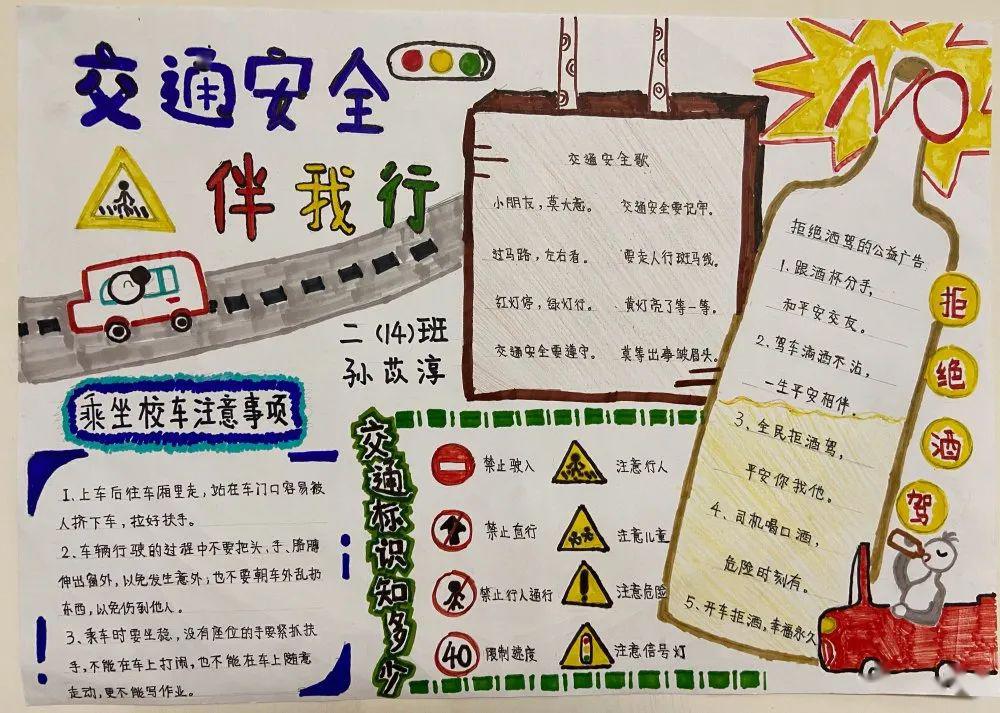 交通安全
伴我行
二(14)班
孙苡淳
乘坐校车注意事项
1、上车后往车厢里走,站在车门口容易被
人挤下车,拉好扶手。
2、车辆行驶的过程中不要把头、手、胳膊
伸出窗外,以免发生意外;也不要朝车外乱扔
东西,以免伤到他人。
3、乘车时要坐稳,没有座位的手要紧抓扶
手,不能在车上打闹,也不能在车上随意
走动,更不能写作业。
交通安全歌
小朋友,莫大意。 交通安全要记牢。
过马路,左右看。 要走人行斑马线。
红灯停,绿灯行。 黄灯亮了等一等。
交通安全要遵守。 莫等出事皱眉头。
交通标识知多少
禁止驶入 注意行人
禁止直行 注意儿童
禁止行人通行 注意危险
40 限制速度 注意信号灯
NO
拒绝酒驾的公益广告:
1、跟酒杯分手,
和平安交友。
2、驾车滴酒不沾,
一生平安相伴。
3、全民拒酒驾,
平安你我他。
4、司机喝口酒,
危险时刻有。
5、开车拒酒,幸福永久
拒绝酒驾